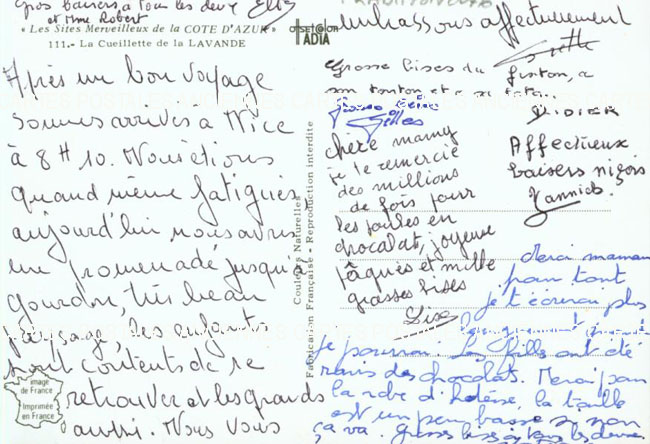 Gros baisers à tous les deux
et Mme Robert
« Les Sites Merveilleux de la COTE D'AZUR »
111.- La Cueillette de la LAVANDE
Après un bon voyage
sommes arrivés à Nice
à 8H10. Nous étions
quand même fatigués
aujourd'hui nous avons
une promenade jusqu'à
gourdon, très beau
paysage, les enfants
sont contents de se
retrouver et les grands
aussi. Nous vous
image
de France
Imprimée
en France
Couleurs Naturelles
Fabrication Française - Reproduction interdite
embrassons affectueusement
Grosse bises du fiston, a
son tonton et a sa tata.
DIDIER
Gilles
chère mamy
je te remercie
des millions
de fois pour
les poules en
chocolat, joyeuse
pâques et mille
grosses bises
Lise
Affectueux
baisers niçois
Yannick
Merci maman
pour tout
je t'écrirai plus
je pourrai. Les filles ont été
ravis des chocolats. Merci pour
la robe d'
la taille
est un peu basse sinon
ça va. Grosses bises à tous les deux.